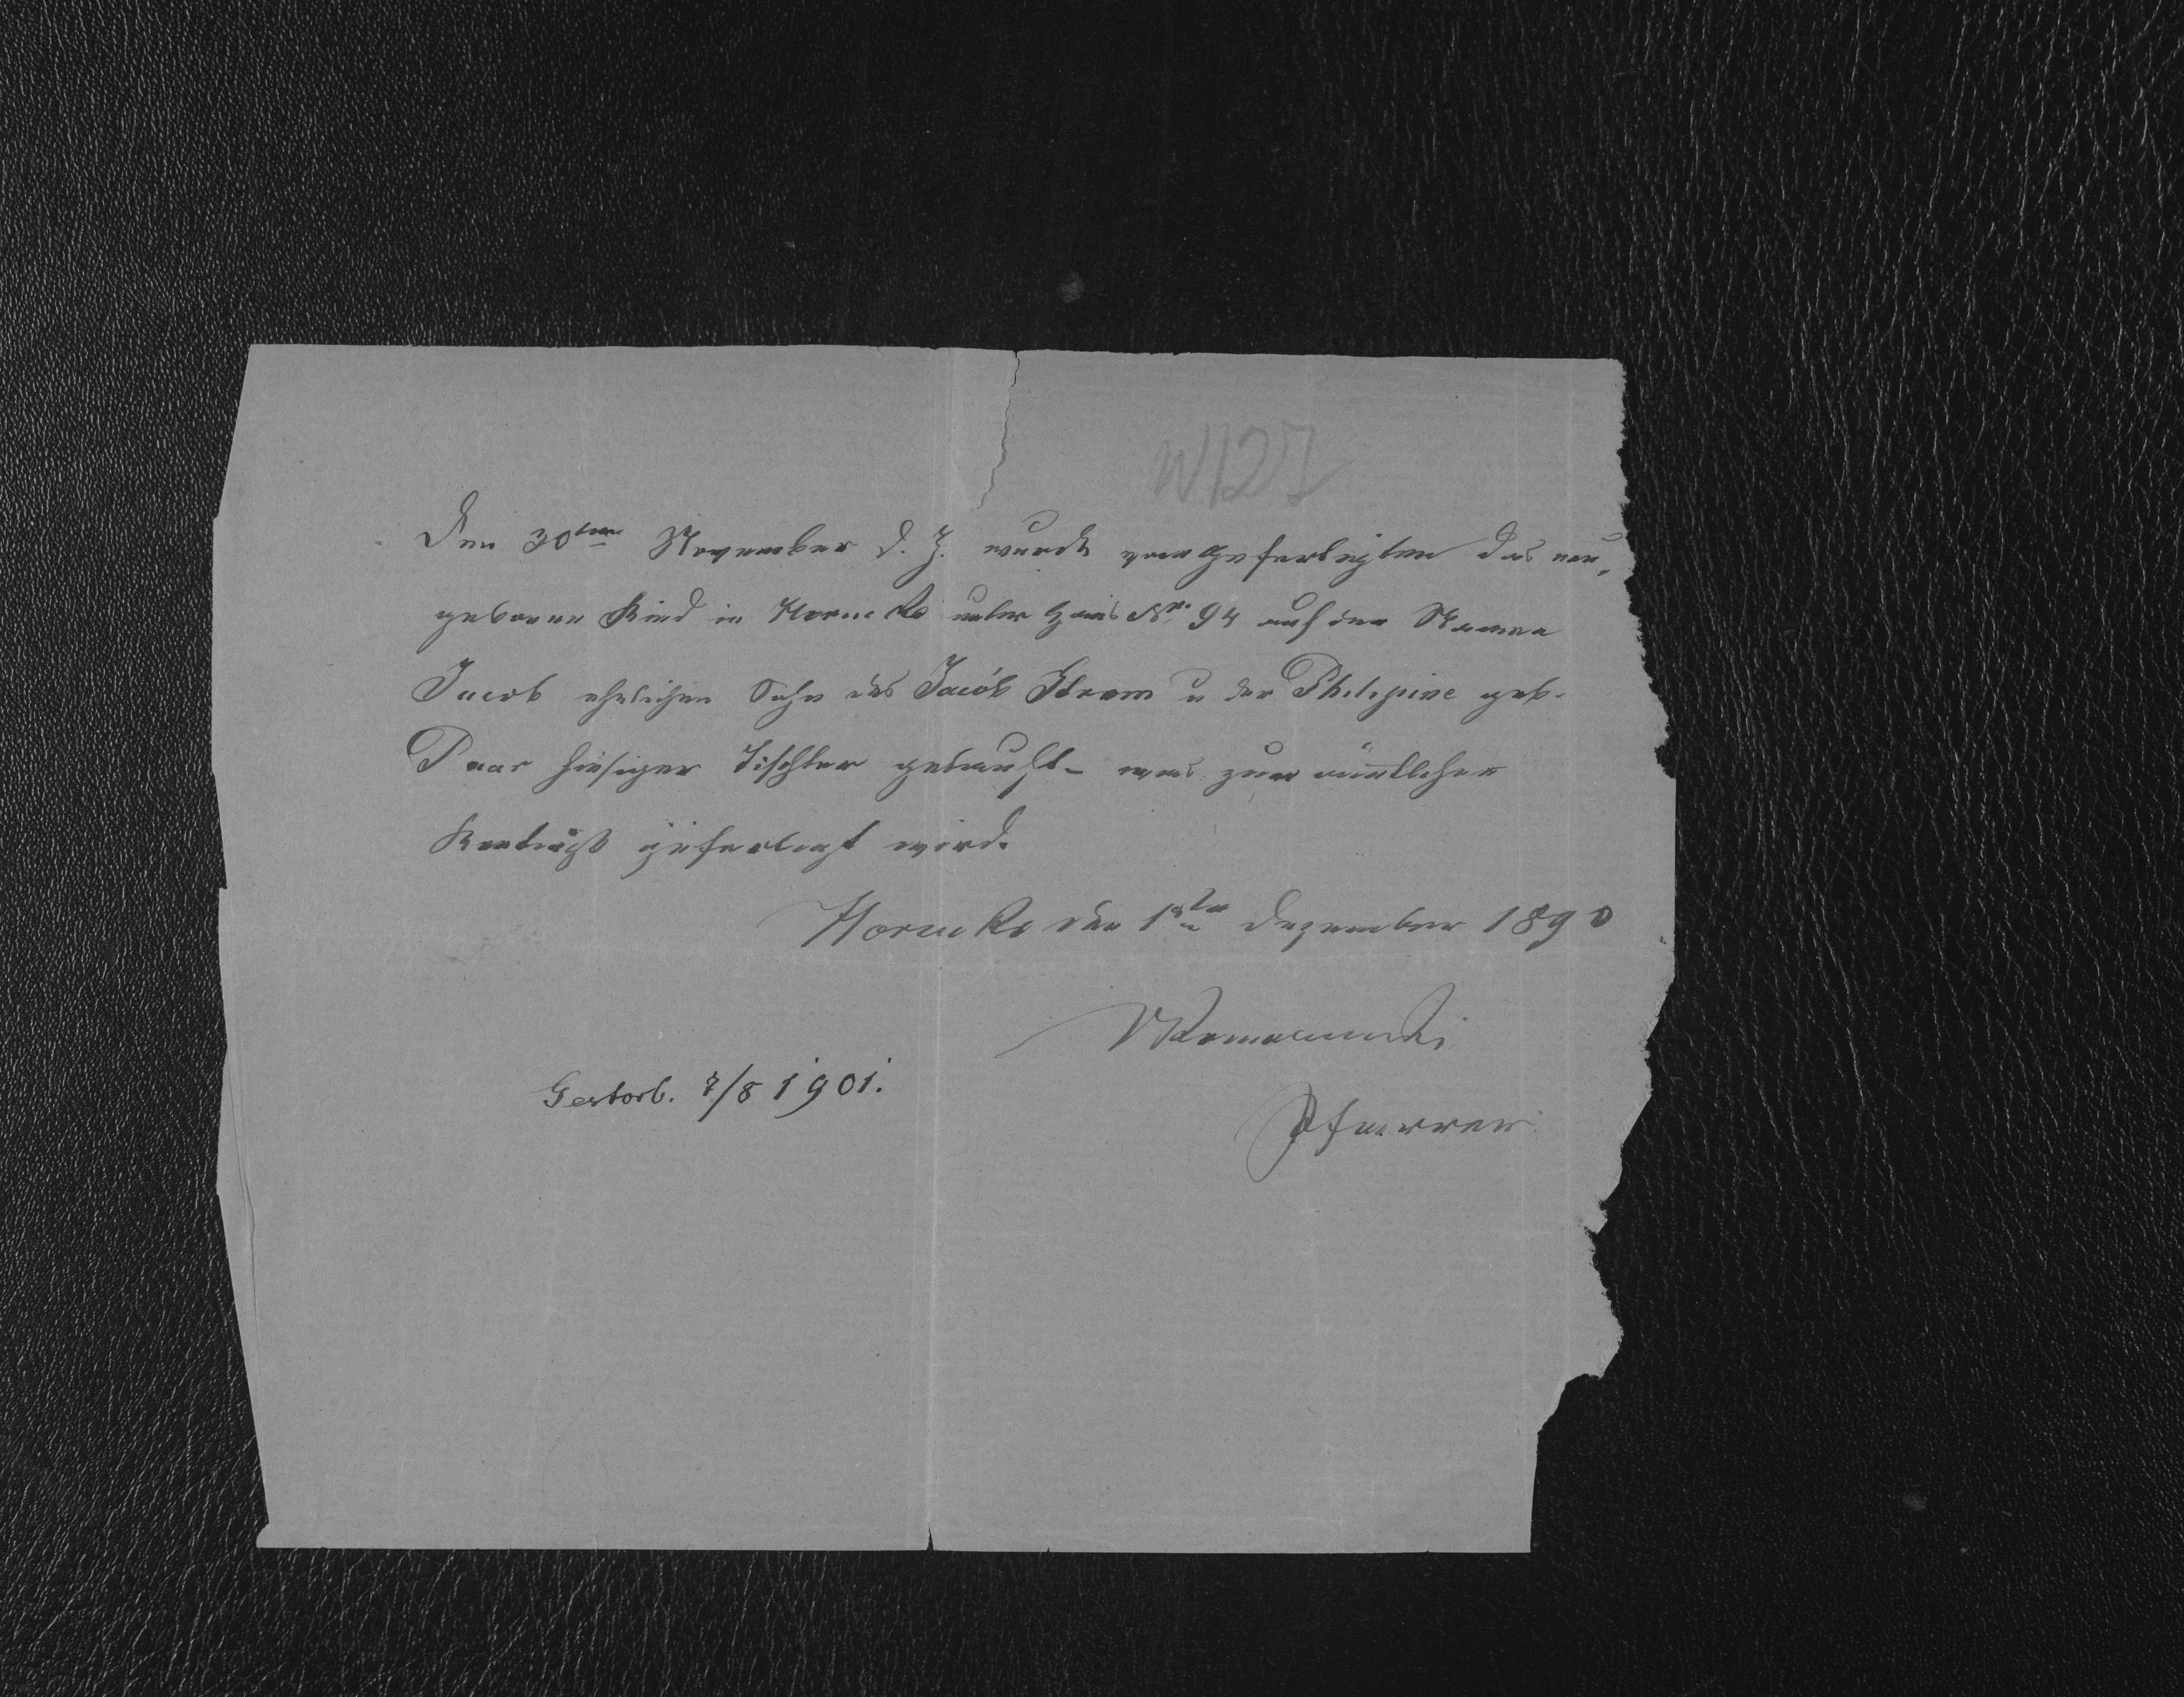 N 127
Den 30ten November d. J. wurde vom Gefertigten das neu,
geborene Kind in Horucko unter Haus Nr. 94 auf den Namen
Jacob ehelichen Sohn des Jacob u der Philipine geb.
Paar hiesiger Tischler getauft – was zur amtlichen
Kentniß gefertigt wird.
Horucko den 1ten Dezember 1890
Pfarrer
Gestorb. 7/8 1901.